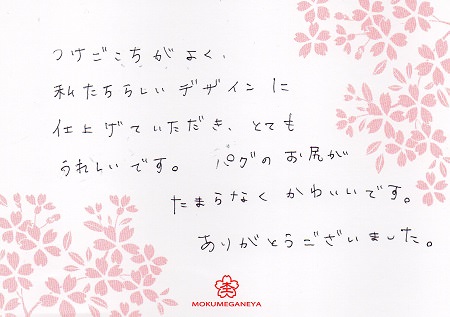 つけごこちがよく、
私たちらしいデザインに
仕上げていただき、とても
うれしいです。 パグのお尻が
たまらなくかわいいです。
ありがとうございました。
MOKUMEGANEYA